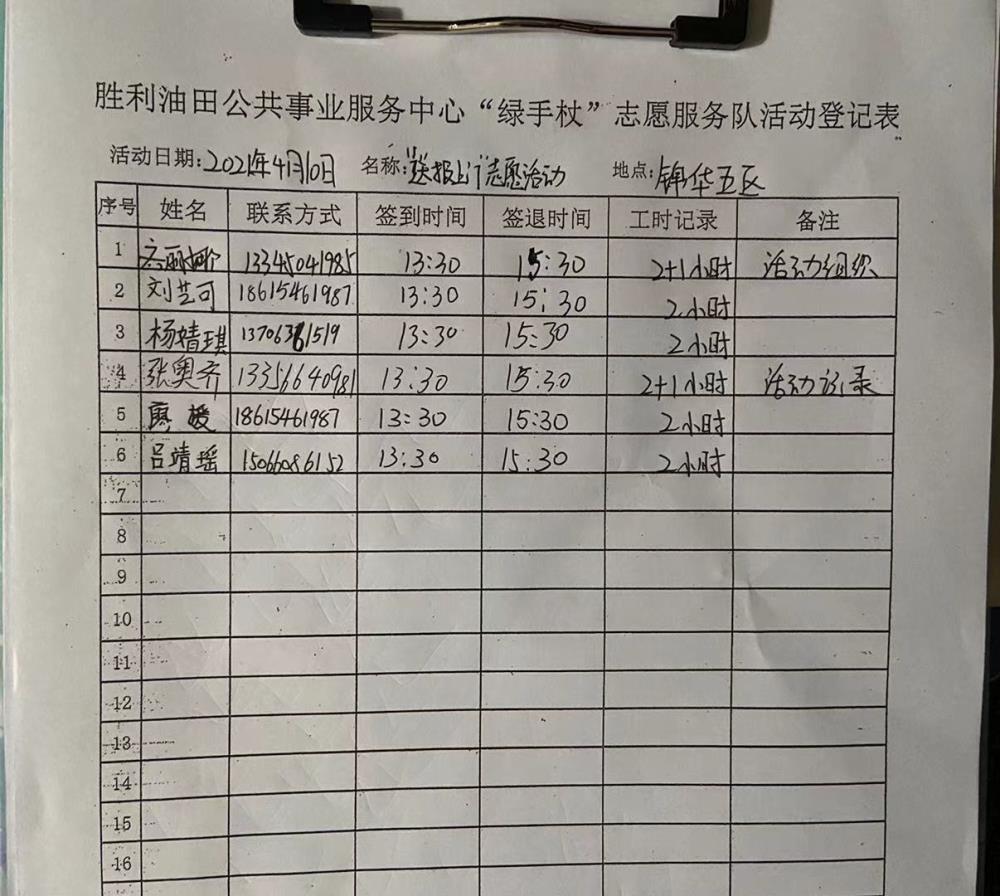 胜利油田公共事业服务中心“绿手杖”志愿服务队活动登记表
活动日期:2021年4月10日 名称:“送报上门”志愿活动 地点:锦华五区
序号 姓名 联系方式 签到时间 签退时间 工时记录 备注
1 丽娜 13345041985 13:30 15:30 2+1小时 活动组织
2 刘芝可 18615461987 13:30 15:30 2小时
3 杨婧琪 13:30 15:30 2小时
4 张奥齐 13356640981 13:30 15:30 2+1小时 活动记录
5 廖媛 18615461987 13:30 15:30 2小时
6 吕靖瑶 15066086152 13:30 15:30 2小时
7
8
9
10
11
12
13
14
15
16